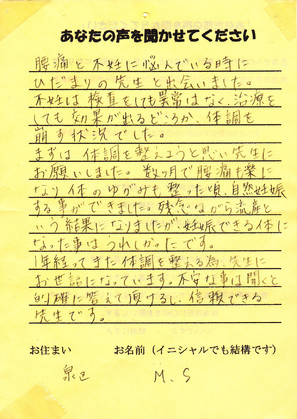 あなたの声を聞かせてください
腰痛と不妊に悩んでいる時に
ひだまりの先生と出会いました。
不妊は検査をしても異常はなく、治療を
しても効果が出るどころか、体調を
崩す状況でした。
まずは体調を整えようと思い先生に
お願いしました。数ヶ月で腰痛も楽に
なり体のゆがみも整った頃、自然妊娠
する事ができました。残念ながら流産と
いう結果になりましたが、妊娠できる体に
なった事はうれしかったです。
1年経ってまた体調を整える為、先生に
お世話になっています。不安な事は聞くと
的確に答えて頂けるし、信頼できる
先生です。
お住まい　お名前（イニシャルでも結構です）
M.S